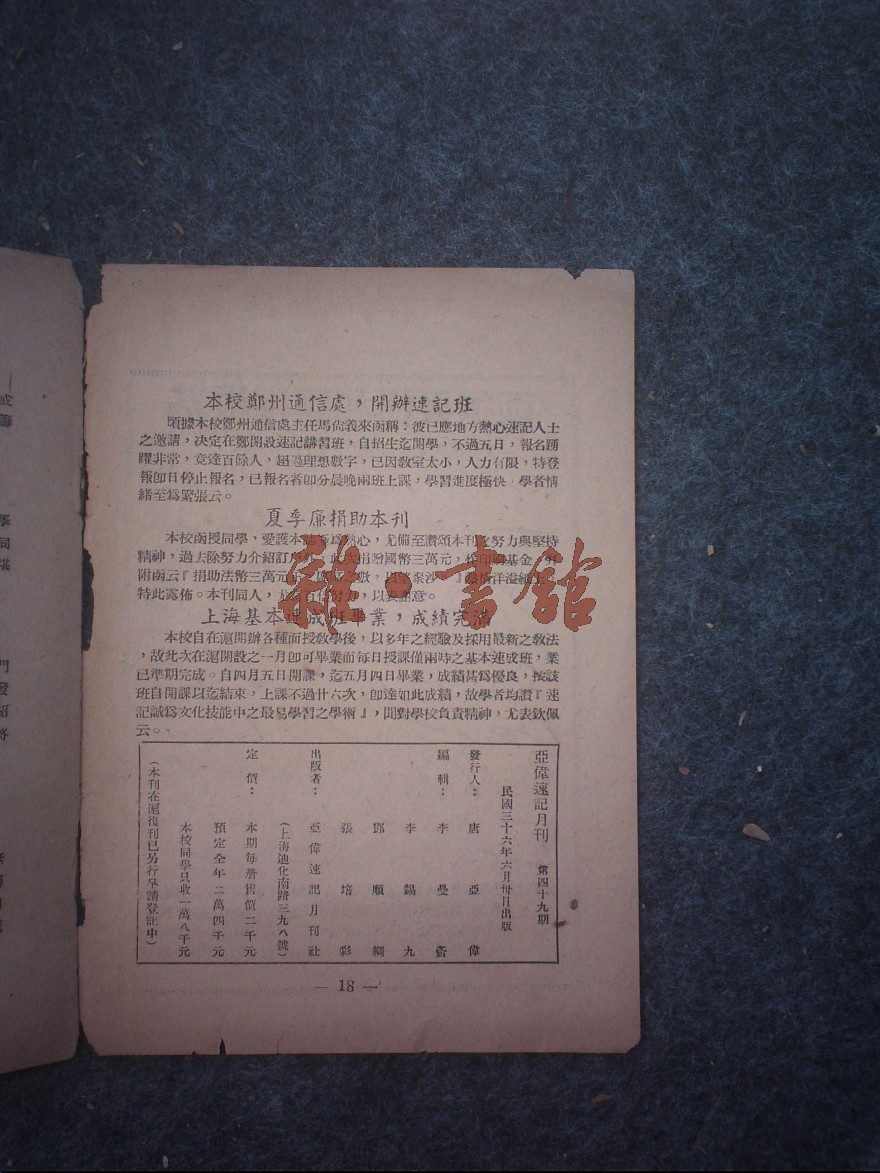 本校鄭州通信處，開辦速記班
頃據本校鄭州通信處主任馬尙義來函稱：彼已應地方熱心速記人士
之邀請，決定在鄭開設速記講習班，自招生迄開學，不過五日，報名踴
躍非常，竟達百餘人，超過理想數字，已因敎室太小，人力有限，特登
報卽日停止報名，已報名者卽分晨晚兩班上課，學習進度極快，學者情
緒至爲緊張云。
夏季廉捐助本刊
本校函授同學，愛護本誌 爲熱心，尤備至讚頌本刊之努力與堅持
精神，過去除努力介紹訂 此次捐贈國幣三萬元，作印刷基金，并
附函云『捐助法幣三萬元
特此露佈。本刊同人，
上海基本速成班畢業，成績完滿
本校自在滬開辦各種面授敎學後，以多年之經驗及採用最新之敎法
，故此次在滬開設之一月卽可畢業而每日授課僅兩時之基本速成班，業
已準期完成。自四月五日開課，迄五月四日畢業，成績甚爲優良，按該
班自開課以迄結束，上課不過廿六次，卽達如此成績，故學者均讚『速
記誠爲文化技能中之最易學習之學術』，聞對學校負責精神，尤表欽佩
云。
亞偉速記月刊　第四十九期
民國三十六年六月卅日出版
發行人：唐亞偉
編輯：李曼
李錫九
鄧順綱
張培彩
出版者：亞偉速記月刊社
（上海迪化南路三九八號）
定價：本期每册售價二千元
預定全年二萬四千元
本校同學只收一萬八千元
（本刊在滬復刊已另行呈請登記中）
— 18 —
雜·書館